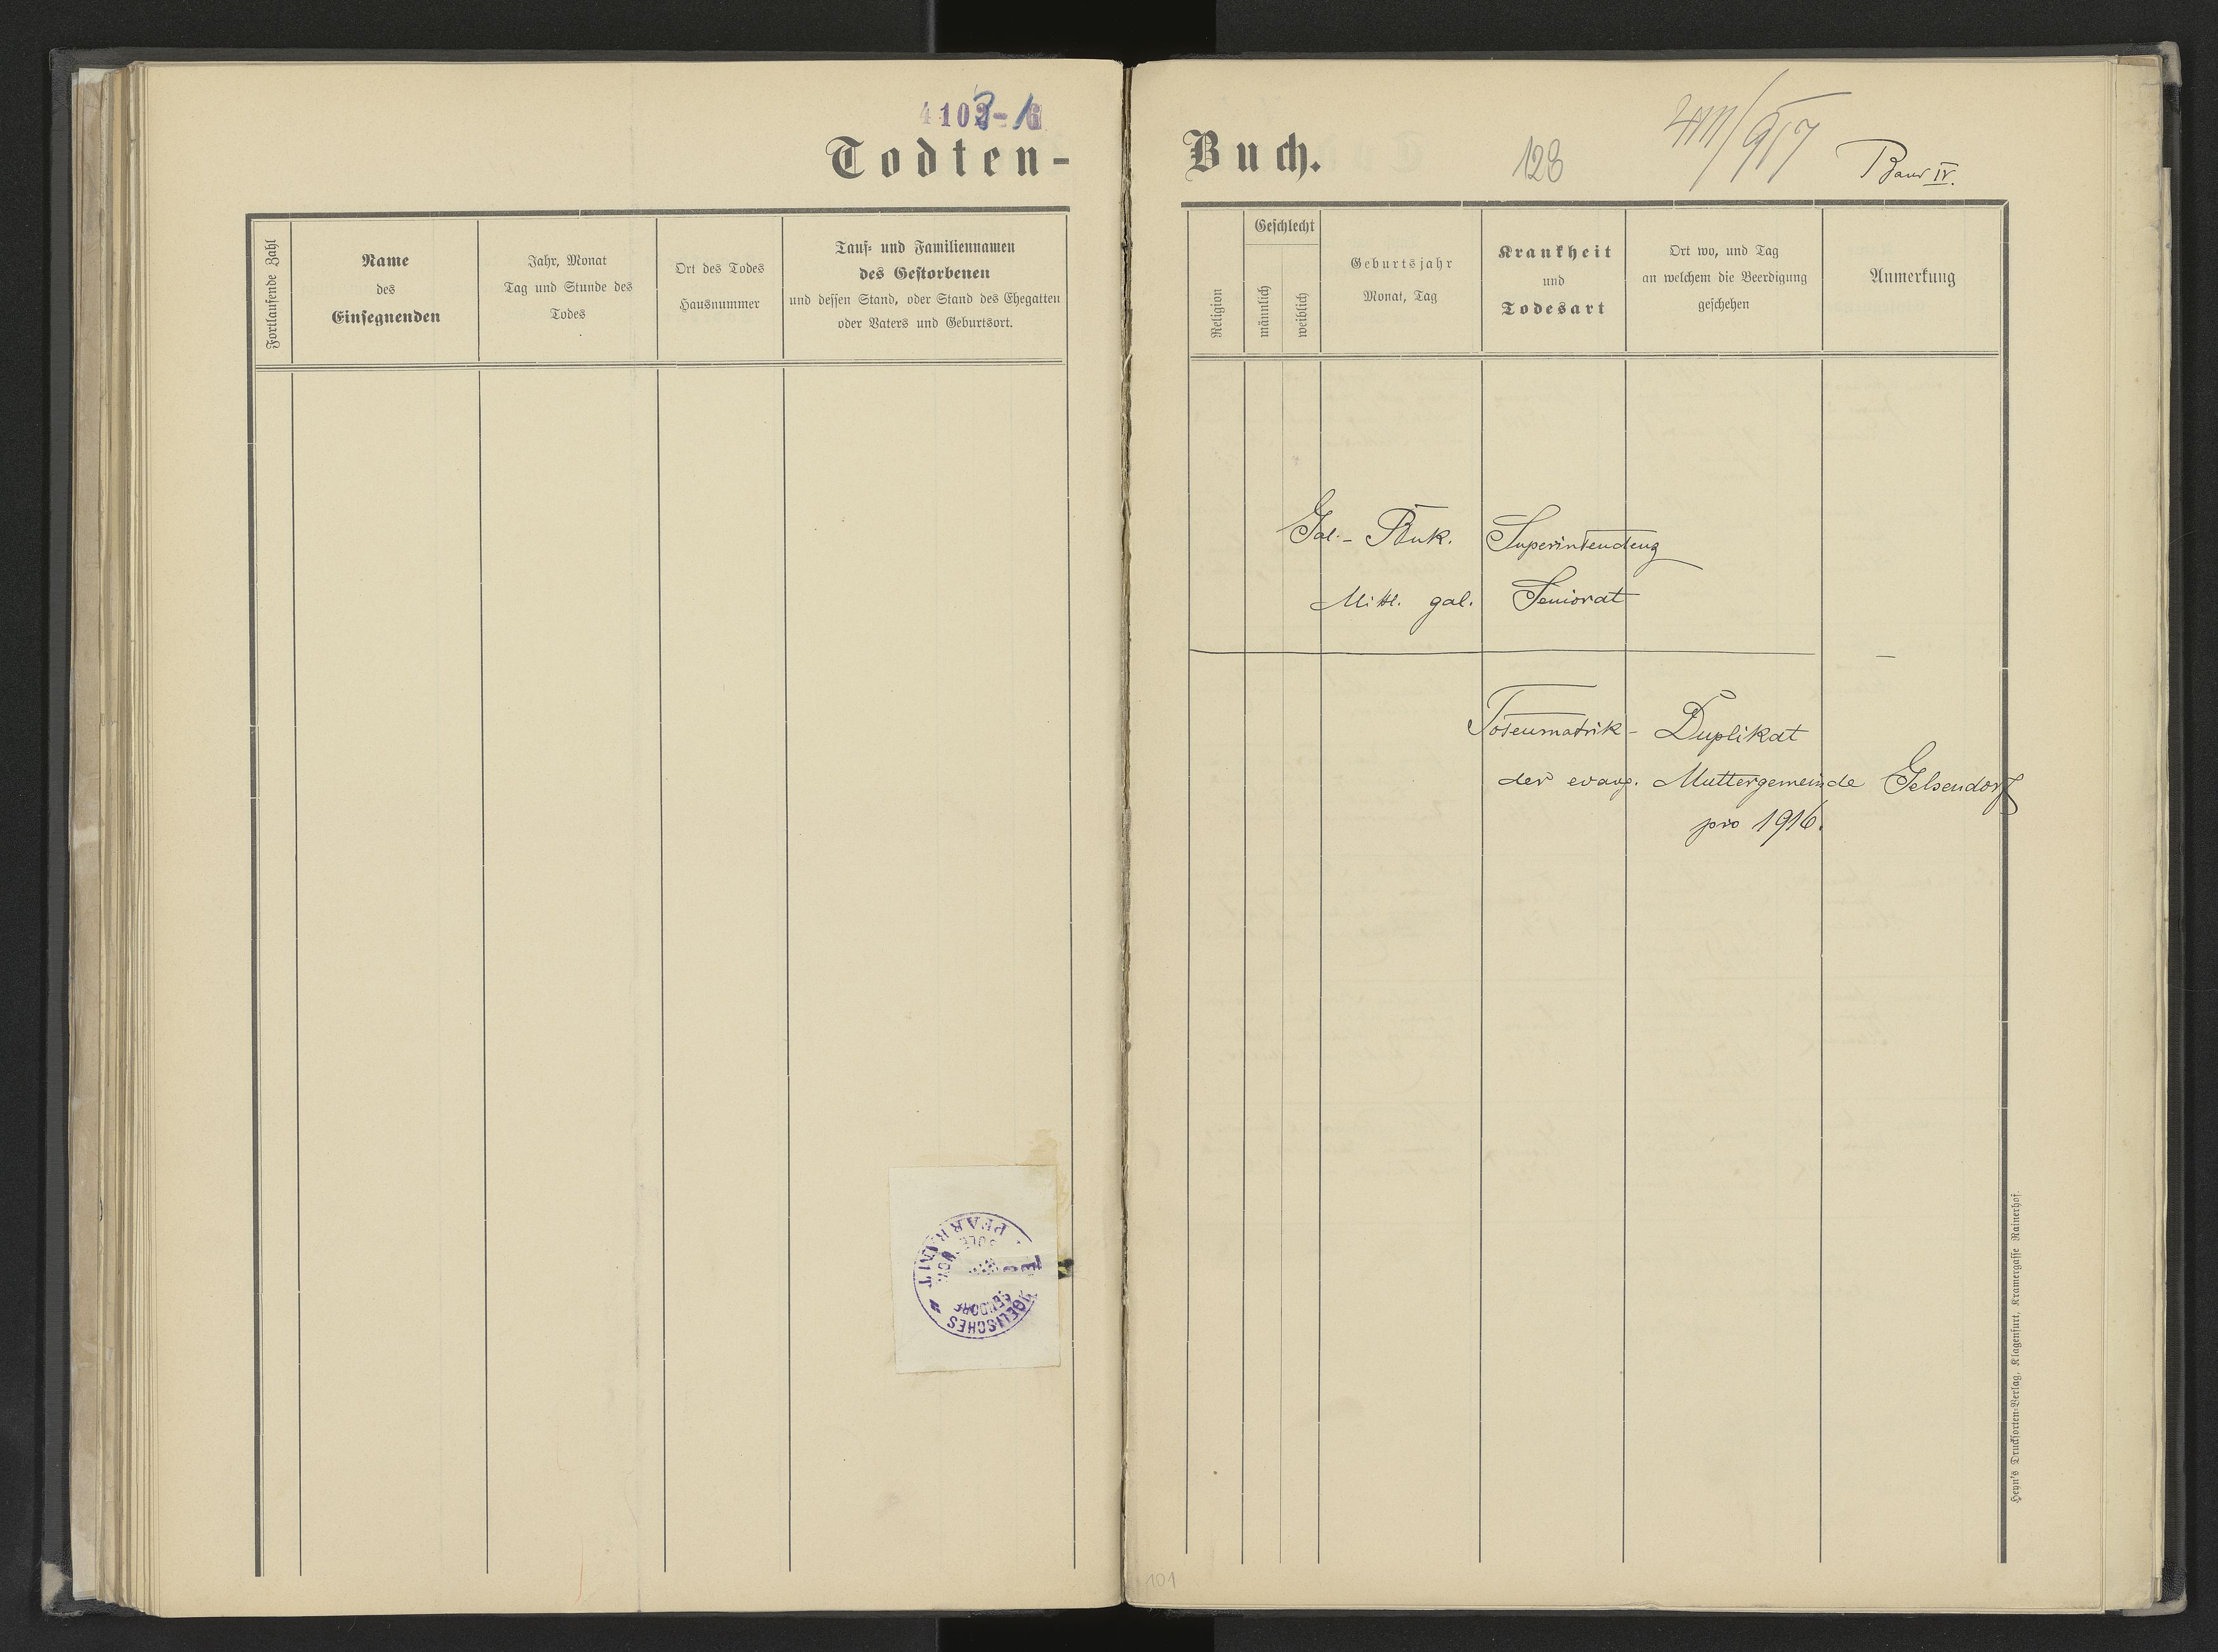 Todten-
Fortlaufende Zahl
Name
des
Einsegnenden
Jahr, Monat
Tag und Stunde des
Todes
Ort des Todes
Hausnummer
Tauf- und Familiennamen
des Gestorbenen
und dessen Stand, oder Stand des Ehegatten
oder Vaters und Geburtsort.
PFARRAMT
Buch.
128
Band IV.
Religion
Geschlecht
männlich
weiblich
Geburtsjahr
Monat, Tag
Krankheit
und
Todesart
Ort wo, und Tag
an welchem die Beerdigung
geschehen
Anmerkung
Gal.- Buk. Superintendenz
Mittl. gal. Seniorat
Totenmatrik - Duplikat
der evang. Muttergemeinde Gelsendorf
pro 1916.
Heyn's Drucksorten-Verlag, Klagenfurt, Kramergasse Rainerhof.
101